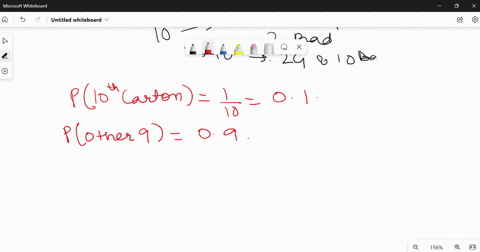 Microsoft Whiteboard
Untitled whiteboard
10
? Bad
10 → 2G & 10 Ba
P(10th Carton) = 1/10 = 0.1.
P(other 9) = 0.9.
156%